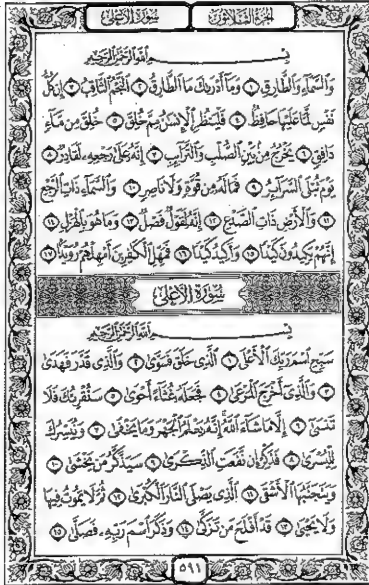 الجزء الثلاثون
سورة الأعلى
بسم الله الرحمن الرحيم
وَالسَّمَاءِ وَالطَّارِقِ ١ وَمَا أَدْرَىٰكَ مَا الطَّارِقُ ٢ النَّجْمُ الثَّاقِبُ ٣ إِن كُلُّ
نَفْسٍ لَّمَّا عَلَيْهَا حَافِظٌ ٤ فَلْيَنظُرِ الْإِنسَٰنُ مِمَّ خُلِقَ ٥ خُلِقَ مِن مَّاءٍ
دَافِقٍ ٦ يَخْرُجُ مِن بَيْنِ الصُّلْبِ وَالتَّرَائِبِ ٧ إِنَّهُ عَلَىٰ رَجْعِهِ لَقَادِرٌ ٨
يَوْمَ تُبْلَى السَّرَائِرُ ٩ فَمَا لَهُ مِن قُوَّةٍ وَلَا نَاصِرٍ ١٠ وَالسَّمَاءِ ذَاتِ الرَّجْعِ
١١ وَالْأَرْضِ ذَاتِ الصَّدْعِ ١٢ إِنَّهُ لَقَوْلٌ فَصْلٌ ١٣ وَمَا هُوَ بِالْهَزْلِ ١٤
إِنَّهُمْ يَكِيدُونَ كَيْدًا ١٥ وَأَكِيدُ كَيْدًا ١٦ فَمَهِّلِ الْكَٰفِرِينَ أَمْهِلْهُمْ رُوَيْدًا ١٧
سورة الأعلى
بسم الله الرحمن الرحيم
سَبِّحِ اسْمَ رَبِّكَ الْأَعْلَى ١ الَّذِي خَلَقَ فَسَوَّىٰ ٢ وَالَّذِي قَدَّرَ فَهَدَىٰ
٣ وَالَّذِي أَخْرَجَ الْمَرْعَىٰ ٤ فَجَعَلَهُ غُثَاءً أَحْوَىٰ ٥ سَنُقْرِئُكَ فَلَا
تَنسَىٰ ٦ إِلَّا مَا شَاءَ اللَّهُ إِنَّهُ يَعْلَمُ الْجَهْرَ وَمَا يَخْفَىٰ ٧ وَنُيَسِّرُكَ
لِلْيُسْرَىٰ ٨ فَذَكِّرْ إِن نَّفَعَتِ الذِّكْرَىٰ ٩ سَيَذَّكَّرُ مَن يَخْشَىٰ ١٠
وَيَتَجَنَّبُهَا الْأَشْقَى ١١ الَّذِي يَصْلَى النَّارَ الْكُبْرَىٰ ١٢ ثُمَّ لَا يَمُوتُ فِيهَا
وَلَا يَحْيَىٰ ١٣ قَدْ أَفْلَحَ مَن تَزَكَّىٰ ١٤ وَذَكَرَ اسْمَ رَبِّهِ فَصَلَّىٰ ١٥
٥٩١